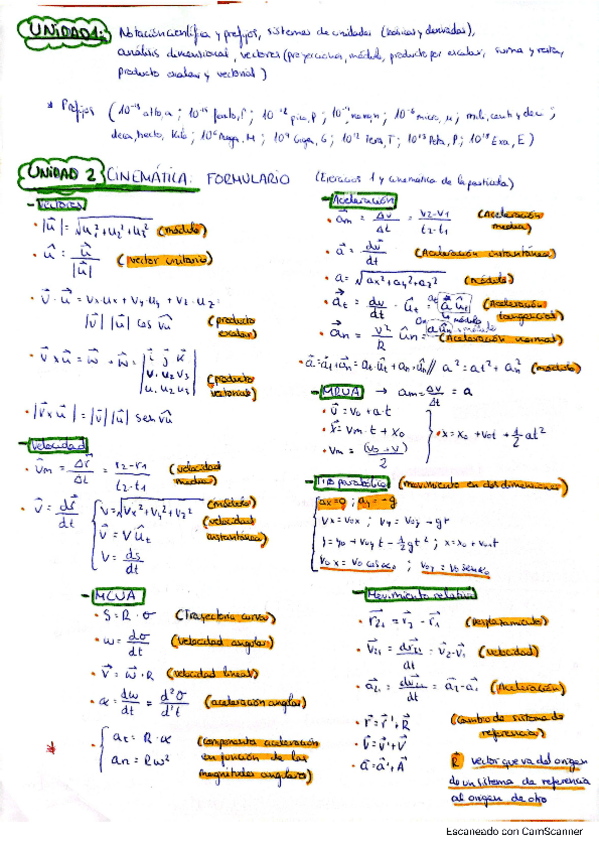 UNIDAD 1: Notación científica y prefijos, sistemas de unidades (básicas y derivadas),
análisis dimensional, vectores (proyecciones, módulo, producto por escalar, suma y resta,
producto escalar y vectorial)
* Prefijos (10⁻¹⁸ atto, a; 10⁻¹⁵ femto, f; 10⁻¹² pico, p; 10⁻⁹ nano, n; 10⁻⁶ micro, μ; mili, centi y deci;
deca, hecto, kilo; 10⁶ Mega, M; 10⁹ Giga, G; 10¹² Tera, T; 10¹⁵ Peta, P; 10¹⁸ Exa, E)
UNIDAD 2 CINEMÁTICA: FORMULARIO (Ejercicios 1 y cinemática de la partícula)
- Vectores
• |u⃗| = √(u₁² + u₂² + u₃²) (módulo)
• û = u⃗ / |u⃗| (vector unitario)
• v⃗ · u⃗ = vx·ux + vy·uy + vz·uz =
|v⃗| |u⃗| cos vu (producto escalar)
• v⃗ x u⃗ = w⃗ → w⃗ = | i j k |
| v₁ v₂ v₃ |
| u₁ u₂ u₃ | (producto vectorial)
• |v⃗ x u⃗| = |v⃗| |u⃗| sen vu
- Velocidad
• v⃗m = Δr⃗ / Δt = r2 - r1 / t2 - t1 (velocidad media)
• v⃗ = dr⃗ / dt
v = √(vx² + vy² + vz²) (módulo)
v⃗ = v ût (velocidad instantánea)
v = ds / dt
- Aceleración
• a⃗m = Δv⃗ / Δt = v2 - v1 / t2 - t1 (Aceleración media)
• a⃗ = dv⃗ / dt (Aceleración instantánea)
• a = √(ax² + ay² + az²) (módulo)
• a⃗t = dv / dt · ût (Aceleración tangencial)
• a⃗n = v² / R ûn (Aceleración normal)
• a⃗ = a⃗t + a⃗n = at·ût + an·ûn // a² = at² + an² (módulo)
- MRUA → am = Δv / Δt = a
• v⃗ = v₀ + a·t
• x⃗ = vm · t + x₀
• vm = (v₀ + v) / 2
• x = x₀ + v₀t + ½ at²
- Tiro parabólico (movimiento en dos dimensiones)
ax = 0 ; ay = -g
vx = v₀x ; vy = v₀y - gt
y = y₀ + v₀y t - ½ g t² ; x = x₀ + v₀xt
v₀x = v₀ cos α₀ ; v₀y = v₀ sen α₀
- MCUA
• S = R · σ (Trayectoria curva)
• ω = dσ / dt (velocidad angular)
• v⃗ = ω⃗ · R (velocidad lineal)
• α = dω / dt = d²σ / d²t (aceleración angular)
* • at = R · α
an = Rω² (componentes aceleración
en función de las
magnitudes angulares)
- Movimiento relativo
• r⃗₂₁ = r⃗₂ - r⃗₁ (Desplazamiento)
• v⃗₂₁ = dr⃗₂₁ / dt = v⃗₂ - v⃗₁ (velocidad)
• a⃗₂₁ = dv⃗₂₁ / dt = a⃗₂ - a⃗₁ (Aceleración)
• r⃗ = r⃗' + R⃗ (Cambio de sistema de
• v⃗ = v⃗' + V⃗ referencia)
• a⃗ = a⃗' + A⃗
R⃗ vector que va del origen
de un sistema de referencia
al origen de otro
Escaneado con CamScanner